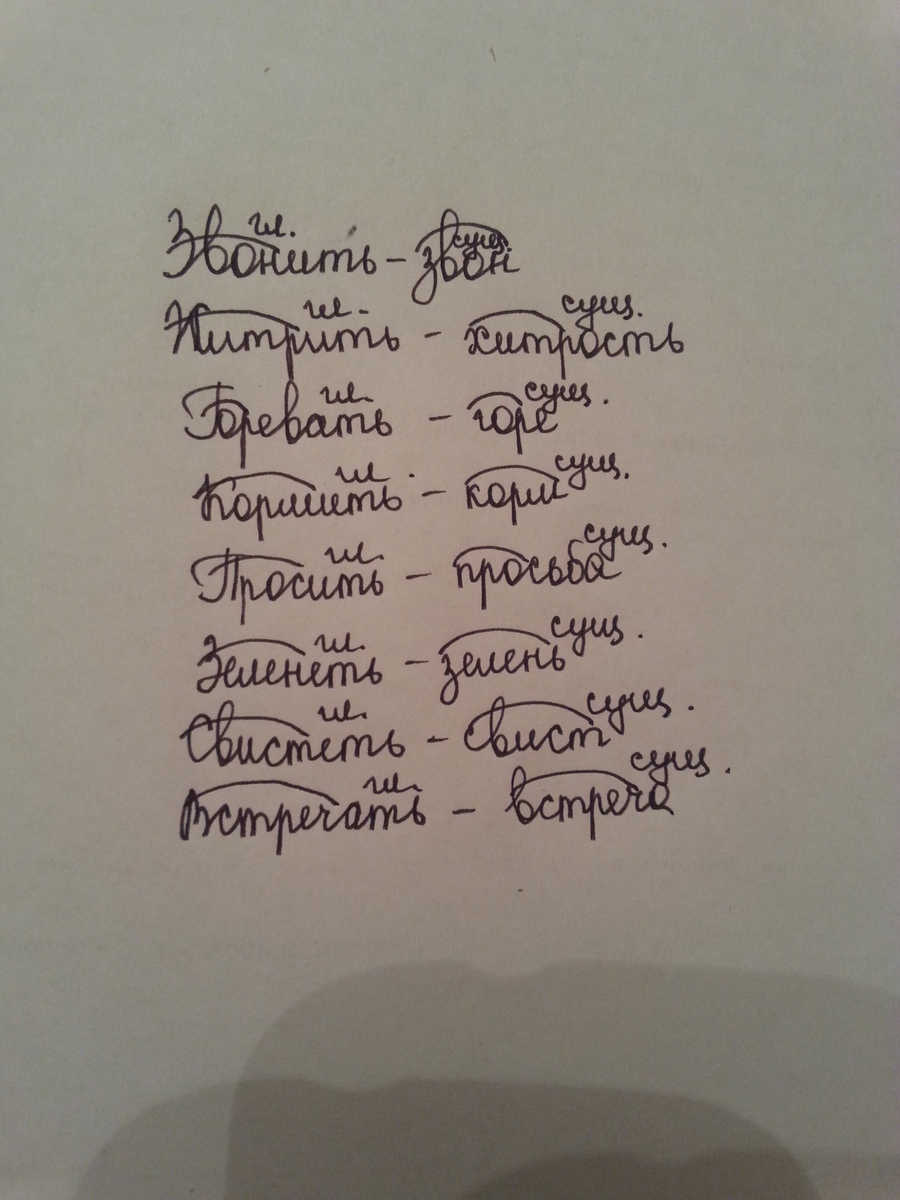 Звонить гл. – звон сущ.
Хитрить гл. – хитрость сущ.
Горевать гл. – горе сущ.
Кормить гл. – корм сущ.
Просить гл. – просьба сущ.
Зеленеть гл. – зелень сущ.
Свистеть гл. – Свист сущ.
Встречать гл. – встреча сущ.